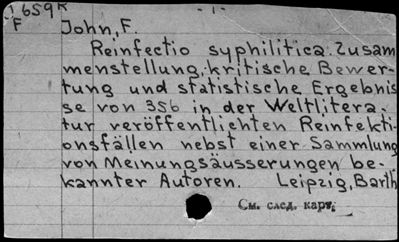 J 659K - 1 -
F John, F.
Reinfectio syphilitica. Zusam
menstellung, kritische Bewer-
tung und statistische Ergebnis
se von 356 in der Weltlitera-
tur veröffentlichten Reinfekti-
onsfällen nebst einer Sammlung
von Meinungsäusserungen be-
kannter Autoren. Leipzig, Barth
См. след. карт.